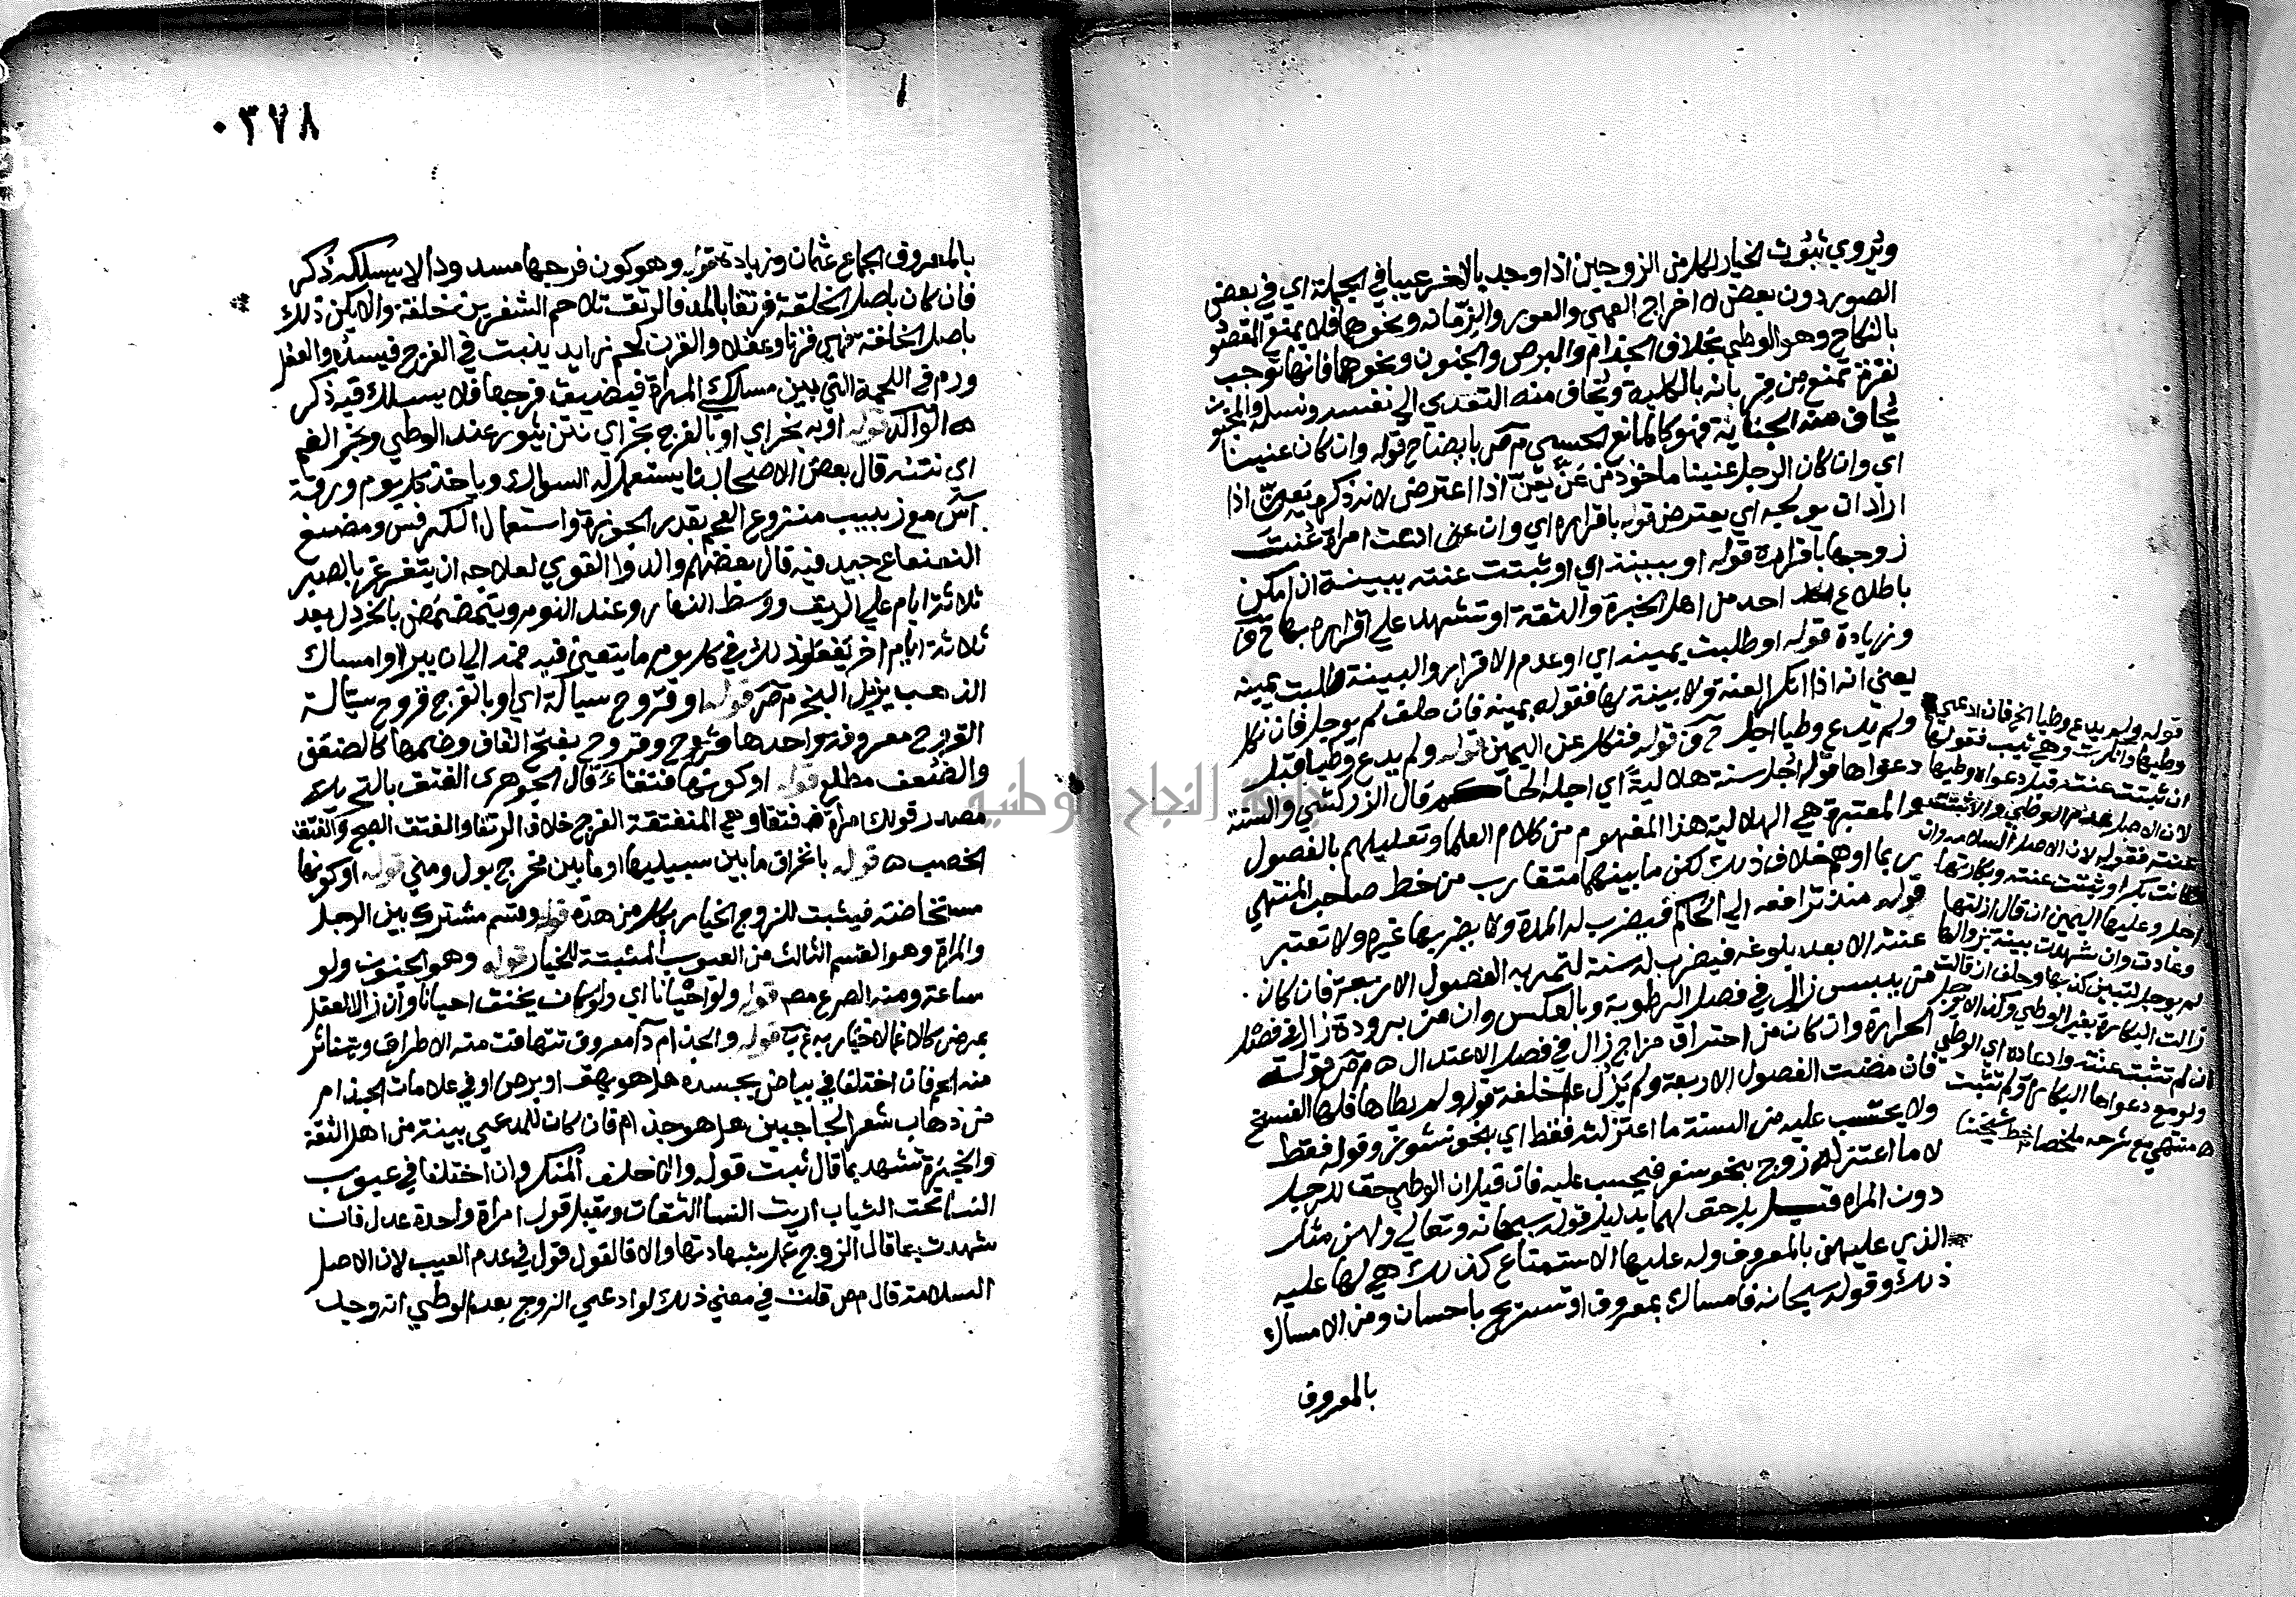 ويروي ثبوت الخيار لكل من الزوجين اذا وجد بالاخر عيبا في الجملة اي في بعض
الصور دون بعض لاخراج العمي والعور والزمانه ونحوها فلا يمنع المقصو
بالنكاح وهو الوطي بخلاف الجذام والبرص والجنون ونحوها فانها توجب
نفرة تمنع من قربانه بالكلية ويخاف منه التعدي الي نفسه ونسله والمجنون
يخاف منه الجناية فهو كالمانع الحسي م ص بايضاح قوله وان كان عنينا
اي وان كان الرجل عنينا ماخوذ من عن يعن اذا اعترض لانه ذكره يعن اذا
اراد ان يولجه اي يعترض قوله باقراره اي وان ادعت امراة عنت
زوجها باقراره قوله او ببينة اي او ثبتت عنته ببينة ان امكن
باطلاع احد من اهل الخبرة والثقة او تشهد علي اقراره بها
وزيادة قوله او طلبت يمينه اي او عدم الاقرار والبينة طلبت يمينه
يعني انه اذا انكر العنة ولا بينة لها فقوله بيمينه فان حلف لم يوجل فان نكل
ولم يدع وطيا اجل قوله فنكل عن اليمين قوله ولم يدع وطيا قبل
دعواها قوله اجل سنة هلالية اي اجله الحاكم قال الزركشي والسنة
المعتبرة هي الهلالية هذا المفهوم من كلام العلما وتعليلهم بالفصول
ربما اوهم خلاف ذلك لكن ما بينهما متقارب من خط صاحب المنتهي
قوله منذ ترافعه الي الحاكم فيضرب له المدة ولا يضربها غيره ولا تعتبر
عنته الا بعد بلوغه فيضرب له سنة لتمر به الفصول الاربعة فان كان
من يبس زال في فصل الرطوبة وبالعكس وان من برودة زال في فصل
الحرارة وان كان من احتراق مزاج زال في فصل الاعتدال ه م ص قوله
فان مضت الفصول الاربعة ولم يزل علم خلقة قوله ولم يطاها فلها الفسخ
ولا يحتسب عليه من السنة ما اعتزلته فقط اي بنحو نشوز وقوله فقط
لا ما اعتزله زوج بنحو سفر فيحسب عليه فان قيل ان الوطي حق للرجل
دون المراه قيل بل حق لهما بدليل قوله سبحانه وتعالي ولهن مثل
الذي عليهن بالمعروف وله عليها الاستمتاع كذلك هي لها عليه
ذلك وقوله سبحانه فامساك بمعروف او تسريح باحسان ومن الامساك
بالمعروف
قوله ولم يدع وطيا الخ فان ادعي
وطيها وانكرت وهي ثيب فقولها
ان ثبتت عنته قبل دعواه وطيها
لان الاصل عدم الوطي والا تثبت
عنته فقوله لان الاصل السلامه وان
كانت بكرا وثبتت عنته وبكارتها
اجل وعليها اليمين ان قال ازلتها
وعادت وان شهدت بينة بزوالها
لم يوجل لتبين كذبها وحلف ان قالت
زالت البكارة بغير الوطي وكذا لا يوجل
ان لم تثبت عنته وادعاه اي الوطي
ولو مع دعواها البكارة ولم تثبت
ه منتهي مع شرحه ملخصا خط شيخنا
٠٣٧٨
١
بالمعروف الجماع عثمان وزيادة قوله وهو كون فرجها مسدودا لا يسلكه ذكر
فان كان باصل الخلقة فرتقا بالمد فالرتق تلاحم الشفرين خلقة والا يكن ذلك
باصل الخلقة فهي قرنا وعفلا والقرن لحم زايد ينبت في الفرج فيسده والعفل
ورم في اللحمة التي بين مسلكي المراة فيضيق فرجها فلا يسلك فيه ذكر
ه الوالد قوله او به بخر اي او بالفرج بخر اي نتن يثور عند الوطي وبخر الفم
اي نتنه قال بعض الاصحاب يستعمل له السواك وياخذ كل يوم ورقة
آس مع زبيب منزوع العجم بقدر الجوزة واستعمال الكرفس ومضغ
النعناع جيد فيه قال بعضهم والدوا القوي لعلاجه ان يتغرغر بالصبر
ثلاثة ايام علي الريق ووسط النهار وعند النوم ويتمضمض بالخردل بعد
ثلاثة ايام اخر يفعل ذلك في كل يوم ما يتغير فيه فمه الي ان يبرا وامساك
الذهب يزيل البخر م ص قوله او قروح سيالة اي او بالفرج قروح سيالة
القروح معروفة واحدها قرح وقروح بفتح القاف وضمها كالضعف
والضعف مطلع قوله او كونها فتقاء قال الجوهري الفتق بالتحريك
مصدر قولك امرأة فتقا وهي المنفتقة الفرج خلاف الرتقا والفتق الصبح والفتق
الخصب ه قوله بانخراق ما بين سبيليها او ما بين مخرج بول ومني قوله او كونها
مستحاضة فيثبت للزوج الخيار بكل من هذه قوله وقسم مشترك بين الرجل
والمراة وهو القسم الثالث من العيوب المثبتة للخيار قوله وهو الجنون ولو
ساعة ومنه الصرع م ص قوله ولو احيانا اي ولو كان يخنق احيانا وان زال العقل
بمرض كالاغما لا خيار به قوله والجذام دآ معروف تتهافت منه الاطراف ويتناثر
منه اللحم فان اختلفا في بياض بجسده هل هو بهق او برص او في علامات الجذام
من ذهاب شعر الحاجبين هل هو جذام فان كان للمدعي بينة من اهل الثقة
والخبرة تشهد بما قال ثبت قوله والا حلف المنكر وان اختلفا في عيوب
النسا تحت الثياب اريت النسا الثقات ويقبل قول امراة واحدة عدل فان
شهدت بما قال الزوج عمل بشهادتها والا فالقول قول في عدم العيب لان الاصل
السلامة قال م ص قلت في معني ذلك لو ادعي الزوج بعد الوطي انه وجد
جامعة النجاح الوطنية